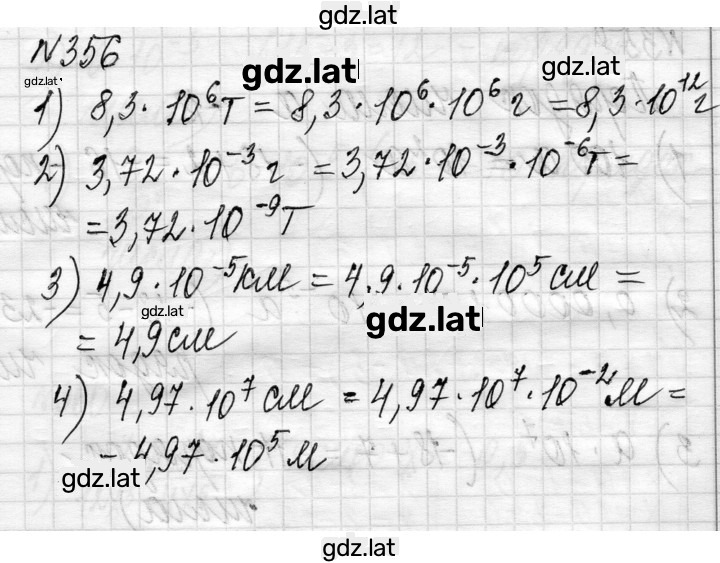 gdz.lat
N356
gdz.lat
gdz.lat
gdz.lat
1) 8,3 · 10⁶ т = 8,3 · 10⁶ · 10⁶ г = 8,3 · 10¹² г
2) 3,72 · 10⁻³ г = 3,72 · 10⁻³ · 10⁻⁶ т =
= 3,72 · 10⁻⁹ т
3) 4,9 · 10⁻⁵ км = 4,9 · 10⁻⁵ · 10⁵ см =
gdz.lat
gdz.lat
= 4,9 см
4) 4,97 · 10⁷ см = 4,97 · 10⁷ · 10⁻² м =
- 4,97 · 10⁵ м
gdz.lat
gdz.lat